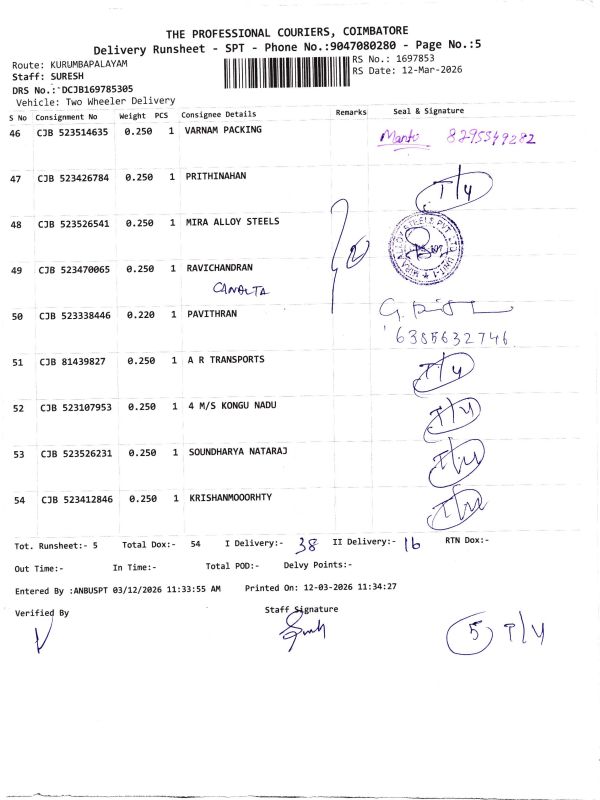 THE PROFESSIONAL COURIERS, COIMBATORE
Delivery Runsheet - SPT - Phone No.:9047080280 - Page No.:5
Route: KURUMBAPALAYAM RS No.: 1697853
Staff: SURESH RS Date: 12-Mar-2026
DRS No.:`DCJB169785305
Vehicle: Two Wheeler Delivery
S No Consignment No Weight PCS Consignee Details Remarks Seal & Signature
46 CJB 523514635 0.250 1 VARNAM PACKING 8295549282
47 CJB 523426784 0.250 1 PRITHINAHAN T/4
48 CJB 523526541 0.250 1 MIRA ALLOY STEELS
49 CJB 523470065 0.250 1 RAVICHANDRAN
50 CJB 523338446 0.220 1 PAVITHRAN
6385632746
51 CJB 81439827 0.250 1 A R TRANSPORTS T/4
52 CJB 523107953 0.250 1 4 M/S KONGU NADU T/4
53 CJB 523526231 0.250 1 SOUNDHARYA NATARAJ T/4
54 CJB 523412846 0.250 1 KRISHANMOOORHTY T/4
Tot. Runsheet:- 5 Total Dox:- 54 I Delivery:- 38 II Delivery:- 16 RTN Dox:-
Out Time:- In Time:- Total POD:- Delvy Points:-
Entered By :ANBUSPT 03/12/2026 11:33:55 AM Printed On: 12-03-2026 11:34:27
Verified By Staff Signature
5 T/4